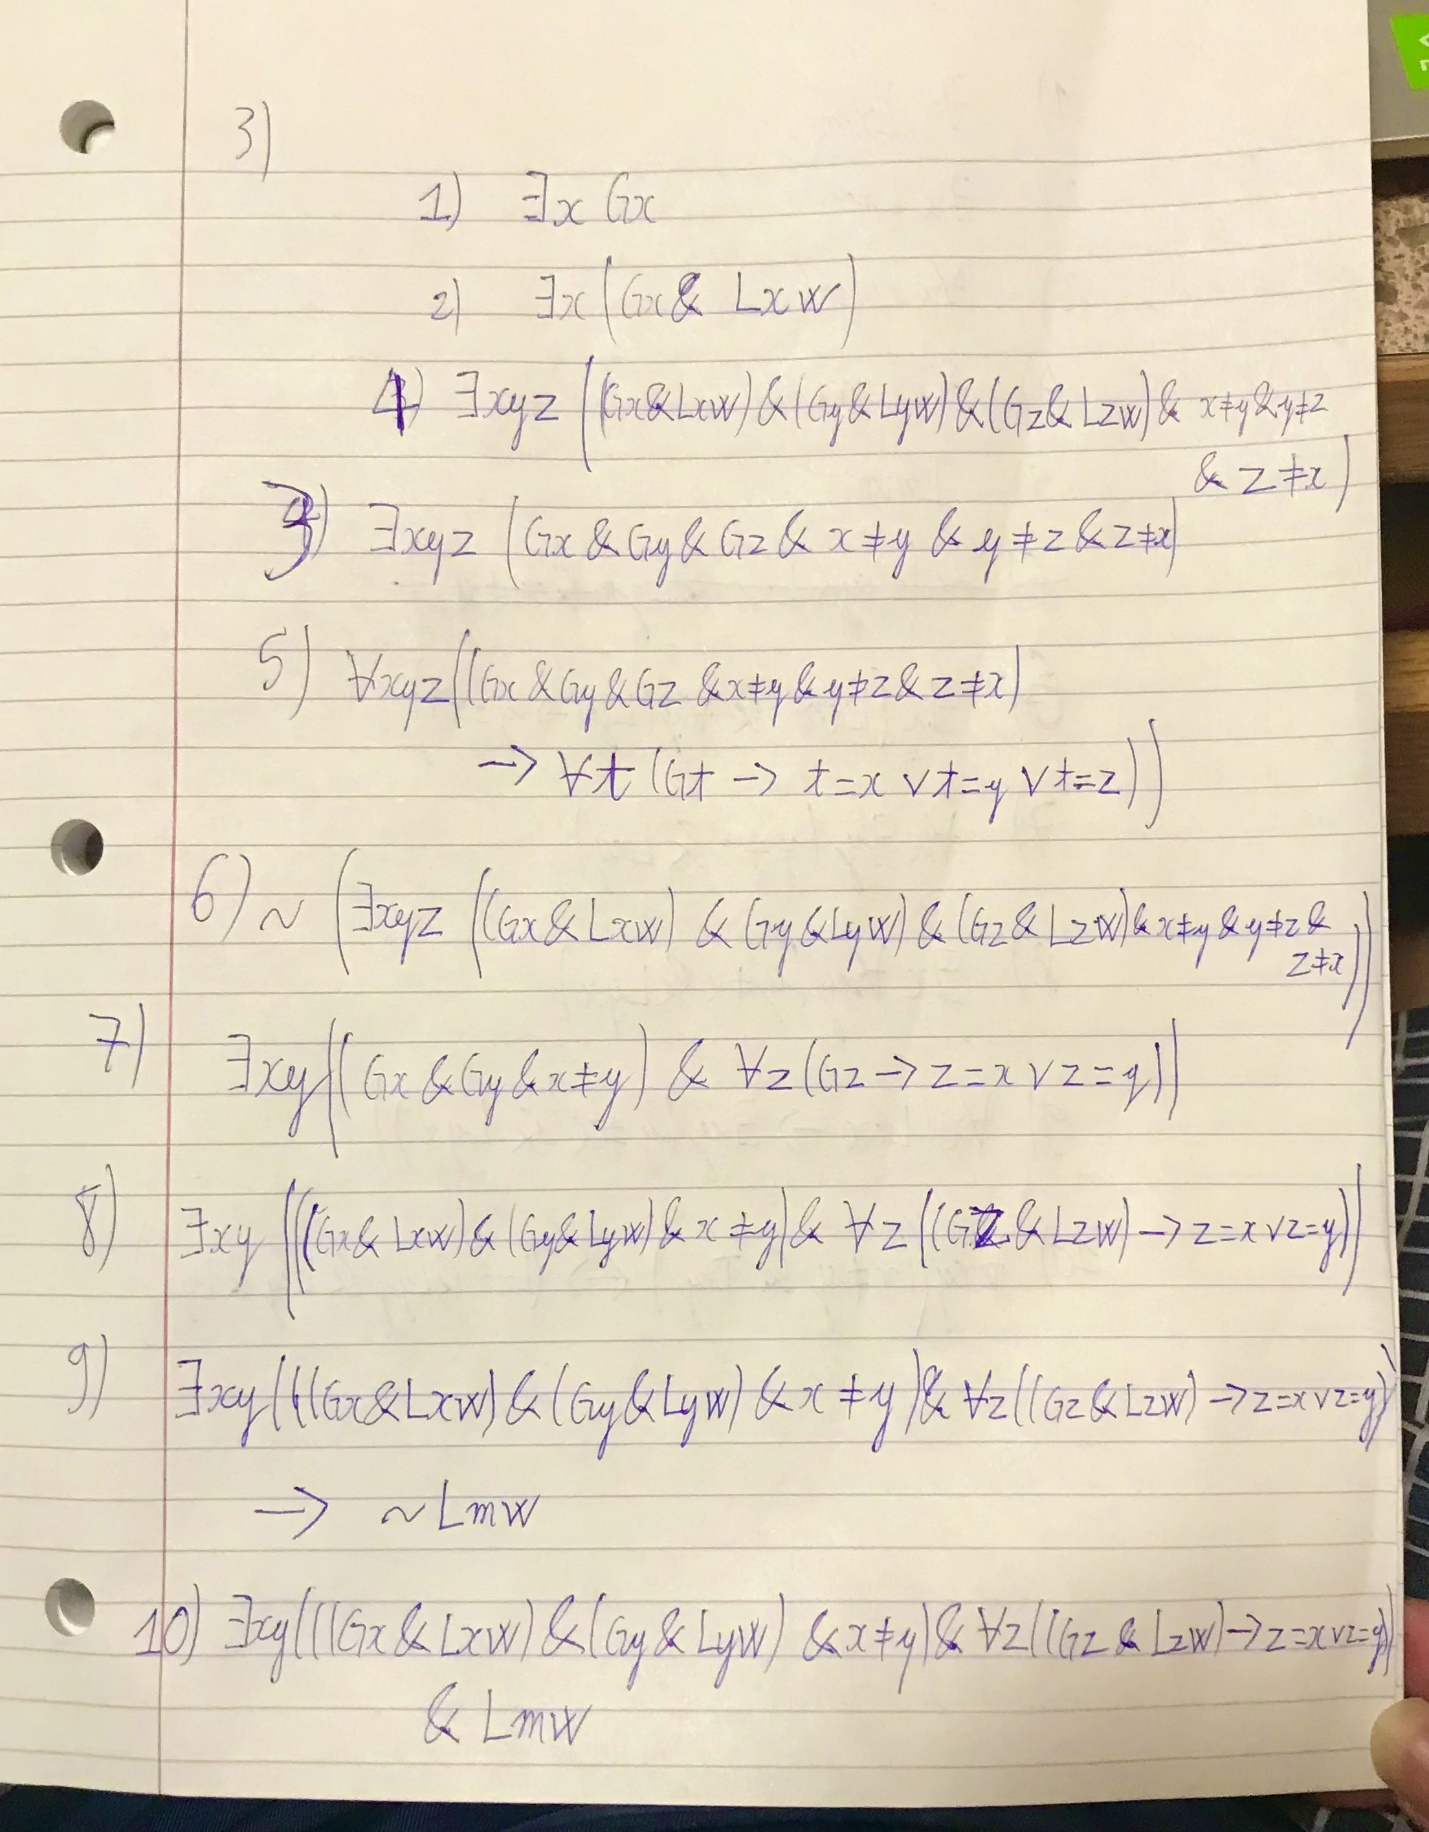 3)
1) ∃x Gx
2) ∃x(Gx & Lxw)
4) ∃xyz ((Gx&Lxw)&(Gy&Lyw)&(Gz&Lzw)& x≠y&y≠z
& z≠x)
3) ∃xyz (Gx & Gy & Gz & x≠y & y≠z & z≠x)
5) ∀xyz((Gx &Gy & Gz &x≠y & y≠z & z≠x)
→ ∀t (Gt → t=x ∨ t=y ∨ t=z))
6) ~ (∃xyz ((Gx&Lxw) & Gy&Lyw) & (Gz& Lzw)& x≠y & y≠z &
z≠x))
7) ∃xy((Gx & Gy & x≠y) & ∀z(Gz → z=x ∨ z=y))
8) ∃xy (((Gx& Lxw)&(Gy&Lyw)& x≠y)& ∀z((Gz & Lzw)→ z=x ∨ z=y))
9) ∃xy(((Gx&Lxw)&(Gy&Lyw) & x≠y)& ∀z((Gz&Lzw) → z=x ∨ z=y)
→ ~Lmw
10) ∃xy(((Gx & Lxw)&(Gy& Lyw) & x≠y)& ∀z((Gz & Lzw)→ z=x ∨ z=y))
& Lmw